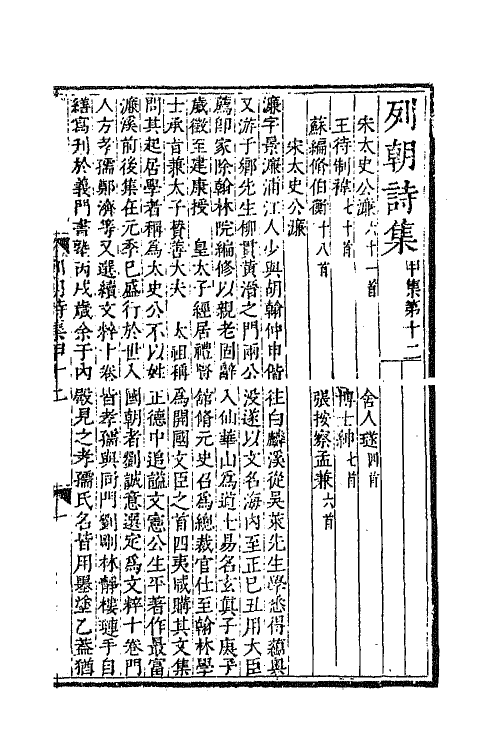 列朝詩集 甲集第十二
宋太史公濂六十一首 舍人璲四首
王待制褘七十首 博士紳七首
蘇編脩伯衡十八首 張按察孟兼六首
宋太史公濂
濂字景濂浦江人少與胡翰仲申偕往白麟溪從吳萊先生學悉得蘊奧
又游于鄉先生柳貫黃溍之門兩公沒遂以文名海內至正己丑用大臣
薦卽家除翰林院編修以親老固辭入仙華山爲道士易名玄真子庚子
歲徵至建康授 皇太子經居禮賢舘脩元史召爲總裁官仕至翰林學
士承旨兼太子贊善大夫 太祖稱爲開國文臣之首四夷咸購其文集
問其起居學者稱爲太史公不以姓正德中追謚文憲公生平著作最富
濂溪前後集在元季已盛行於世入國朝者劉誠意選定爲文粹十卷門
人方孝孺鄭濟等又選續文粹十卷皆孝孺與同門劉剛林靜樓璉手自
繕寫刋於義門書塾丙戌歲余于內殿見之孝孺氏名皆用墨塗乙蓋猶
列朝詩集甲十二 一